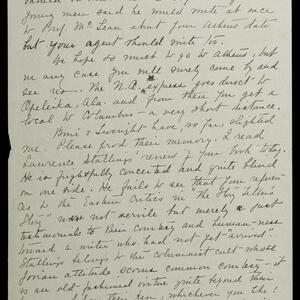 young men said he would write at once
to Prof. McLean about your Athens date
but your agent should write too.
We hope so much to go to Athens, but
in any case you will surely come by and
see us. The N.A. express goes direct to
Opelika, Ala. and from there you get a
local to Columbus – a very short distance.
Boni + Liveright have, so far, slighted
me. Please prod their memory. I read
Lawrence Stallings review of your book today.
He is frightfully conceited and quite blind
on one side. He fails to see that your
as to the Eastern Critics in "The Story Teller's
Story" was not servile but merely a just
testimonials to their courtesy and human-ness
toward a writer who had not yet "arrived".
Stallings belongs to the Columnist cult whose
Jovian attitude scorns common courtesy – it
is an old fashioned virtue quite beyond their
their ken, whichever you like!